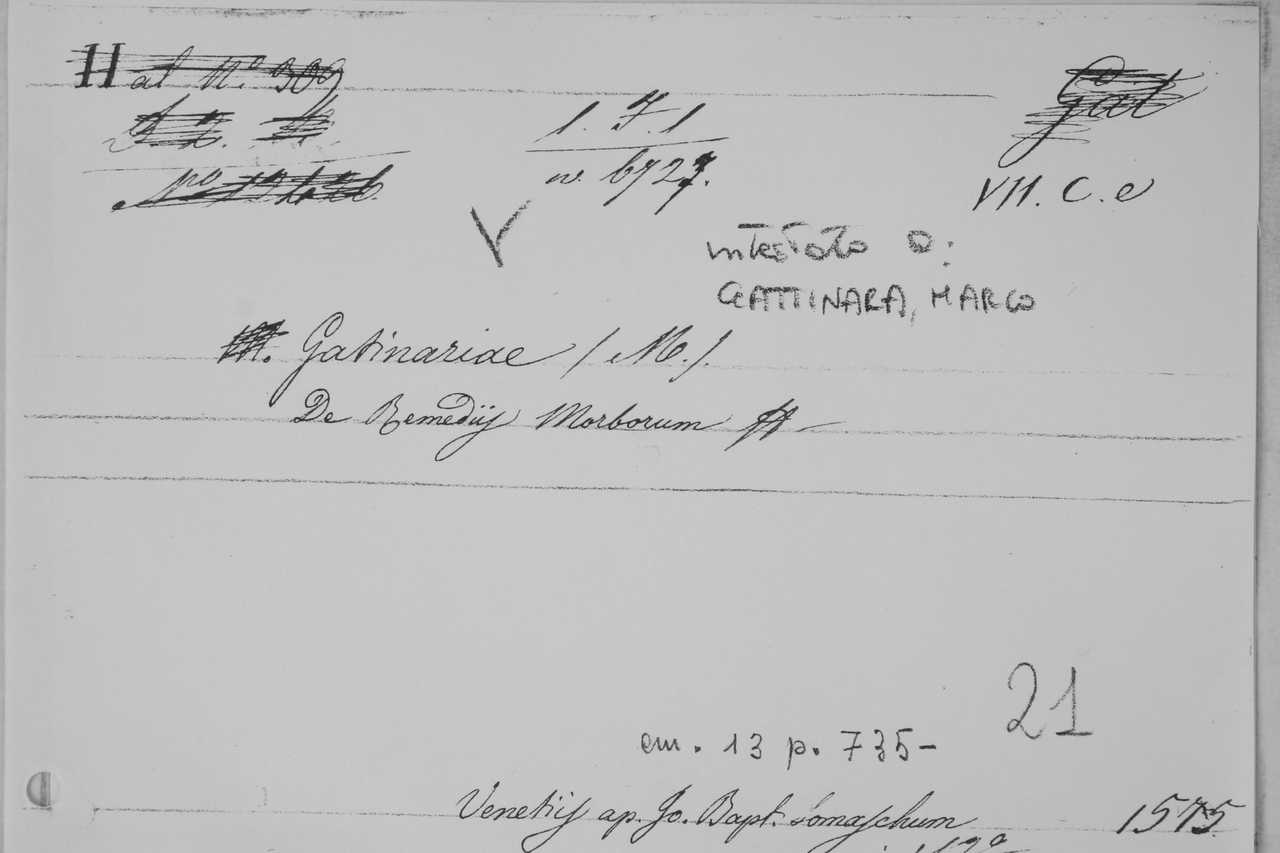 H al N.° 309
Gat
1. 7. 1
n. 6727.
VII. C. e
V
intestato a:
GATTINARA, MARCO
M. Gatinariae (M.).
De Remediis Morborum
21
cm. 13 p. 735-
Venetijs ap. Jo. Bapt. Somaschum 1575
12°